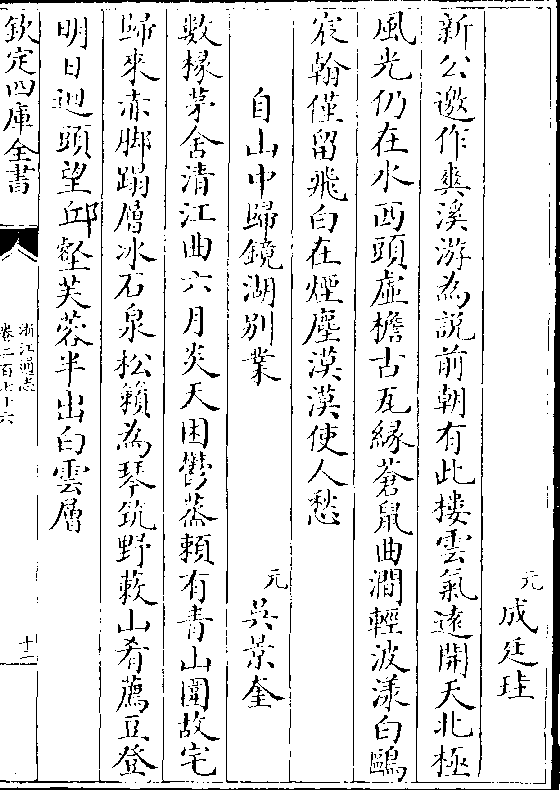 元 成廷珪
新公邀作奭溪游為說前朝有此樓雲氣遠開天北極
風光仍在水西頭虛檐古瓦緣蒼鼠曲澗輕波漾白鷗
宸翰僅留飛白在煙塵漠漠使人愁
自山中歸鏡湖別業
元 吳景奎
數椽茅舍清江曲六月炎天困鬱蒸賴有青山圍故宅
歸來赤脚蹋層冰石泉松籟為琴筑野蔌山肴薦豆登
明日迴頭望邱壑芙蓉半出白雲層
欽定四庫全書
浙江通志
卷二百七十六
十二